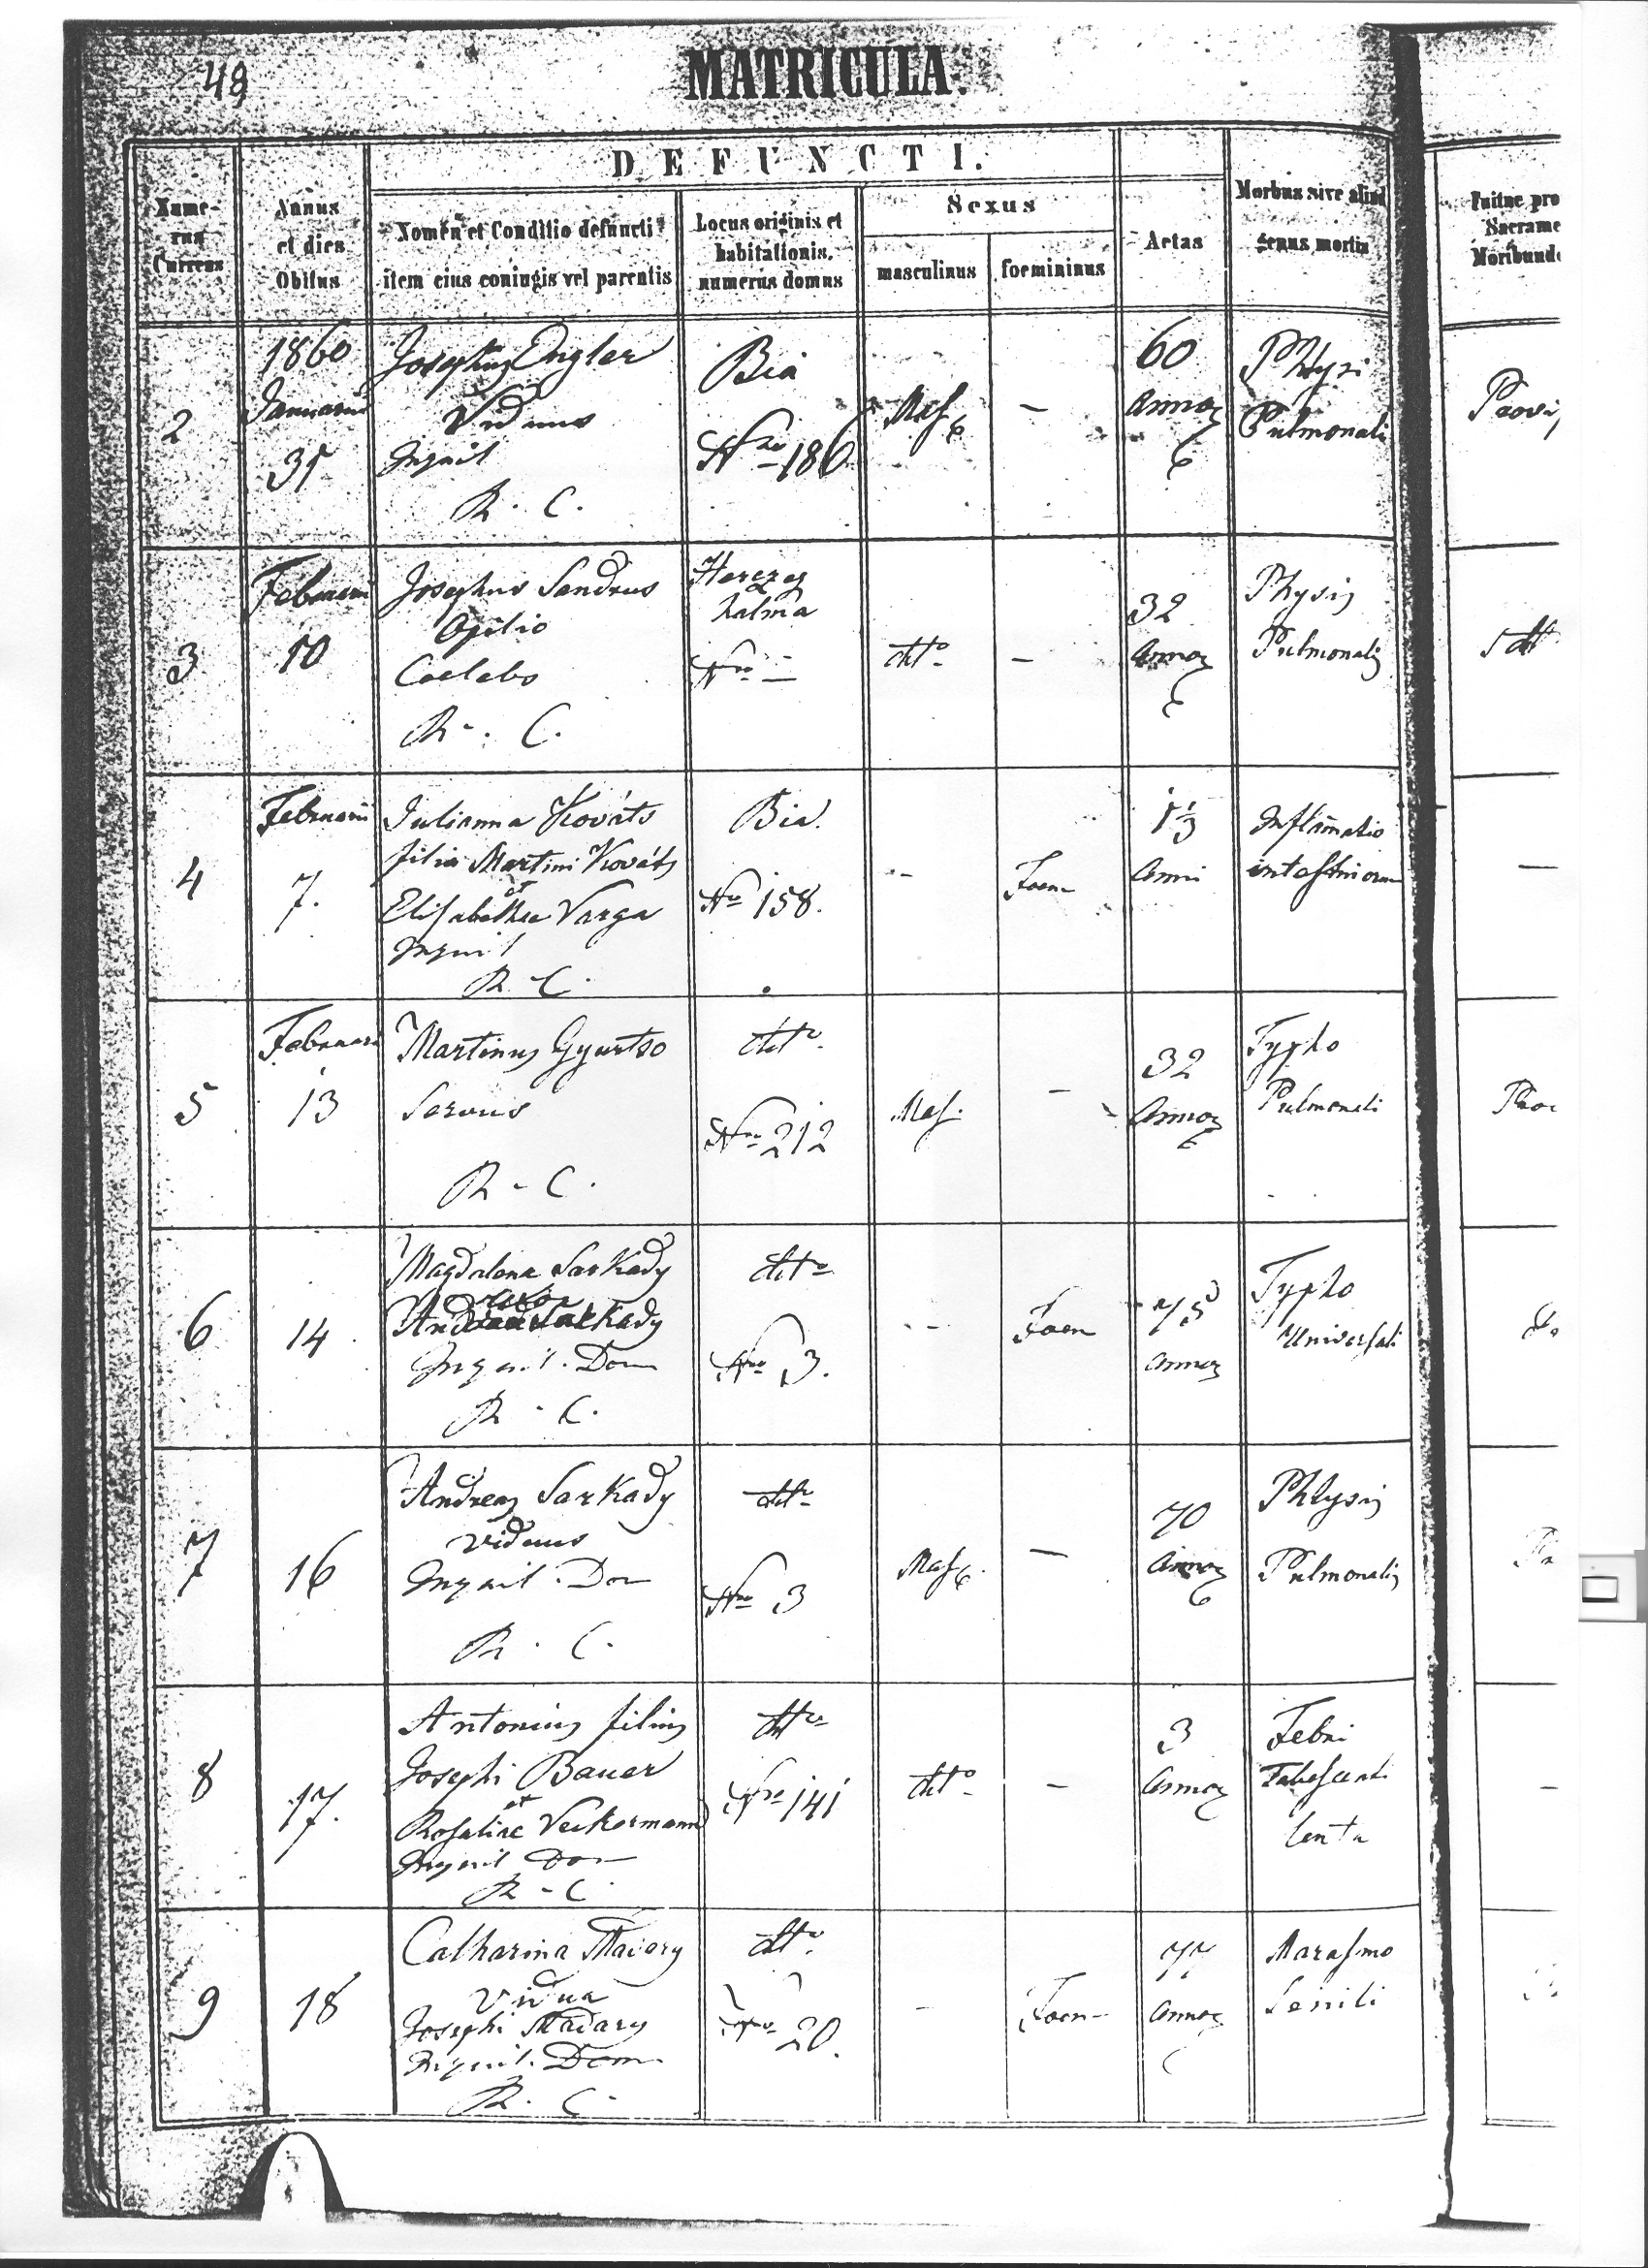 48
MATRICULA.
DEFUNCTI.
Nume-
rus
Currens
Annus
et dies
Obitus
Nomen et Conditio defuncti
item eius coniugis vel parentis
Locus originis et
habitationis,
numerus domus
Sexus
masculinus
foemininus
Aetas
Morbus sive aliud
genus mortis
Sacrame
Moribund
2
1860
Januarii
31
Josephus Engler
Viduus
Inquil
R. C.
Bia
Nro 186
Mas
-
60
Annor
Phtysi
Pulmonali
Provi
3
Februarii
10
Josephus Sandrus
Opilio
Caelebs
R. C.
Herczeg
halma
Nro -
dtto
-
32
Annor
Physis
Pulmonalis
dtt
4
Februarii
7.
Julianna Kováts
filia Martini Kováts
et
Elisabethae Varga
Inquil
R. C.
Bia.
Nro 158.
-
Foem
1 1/3
Anni
Inflamatio
intestinorum
-
5
Februari
13
Martinus Gyurtso
Servus
R - C.
dtto.
Nro 212
Mas.
-
32
Annor
Typho
Pulmonali
6
14.
Magdalena Sarkady
uxor
Andreae Sarkady
Inquil. Dom
R. C.
dtto
Nro 3.
-
Foem
75
Annor
Typho
Universali
7
16
Andreas Sarkady
viduus
Inquil. Dom
R. C.
dtto
Nro 3
Mas
-
70
Annor
Phtysis
Pulmonalis
8
17.
Antonius filius
Josephi Bauer
et
Rosaliae Veckermann
Inquil Dom
R - C.
dtto
Nro 141
dtto
-
3
Annor
Febri
Tabescenti
lenta
-
9
18
Catharina Madary
Vidua
Josephi Madary
Inquil. Dom.
R. C.
dtto.
Nro 20.
-
Foem
77
Annor
Marasmo
Senili